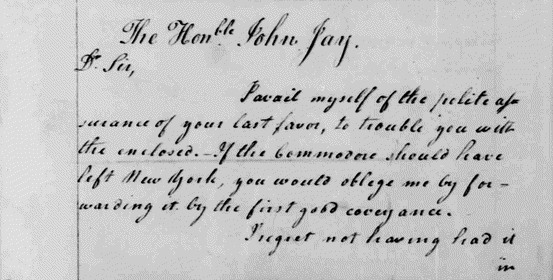 The Honble John Jay.
Dr Sir,
I avail myself of the polite as=
surance of your last favor, to trouble you with
the enclosed.—If the Commodore should have
left New York, you would oblege me by for—
warding it by the first good coveyance.
I regret not having had it
in